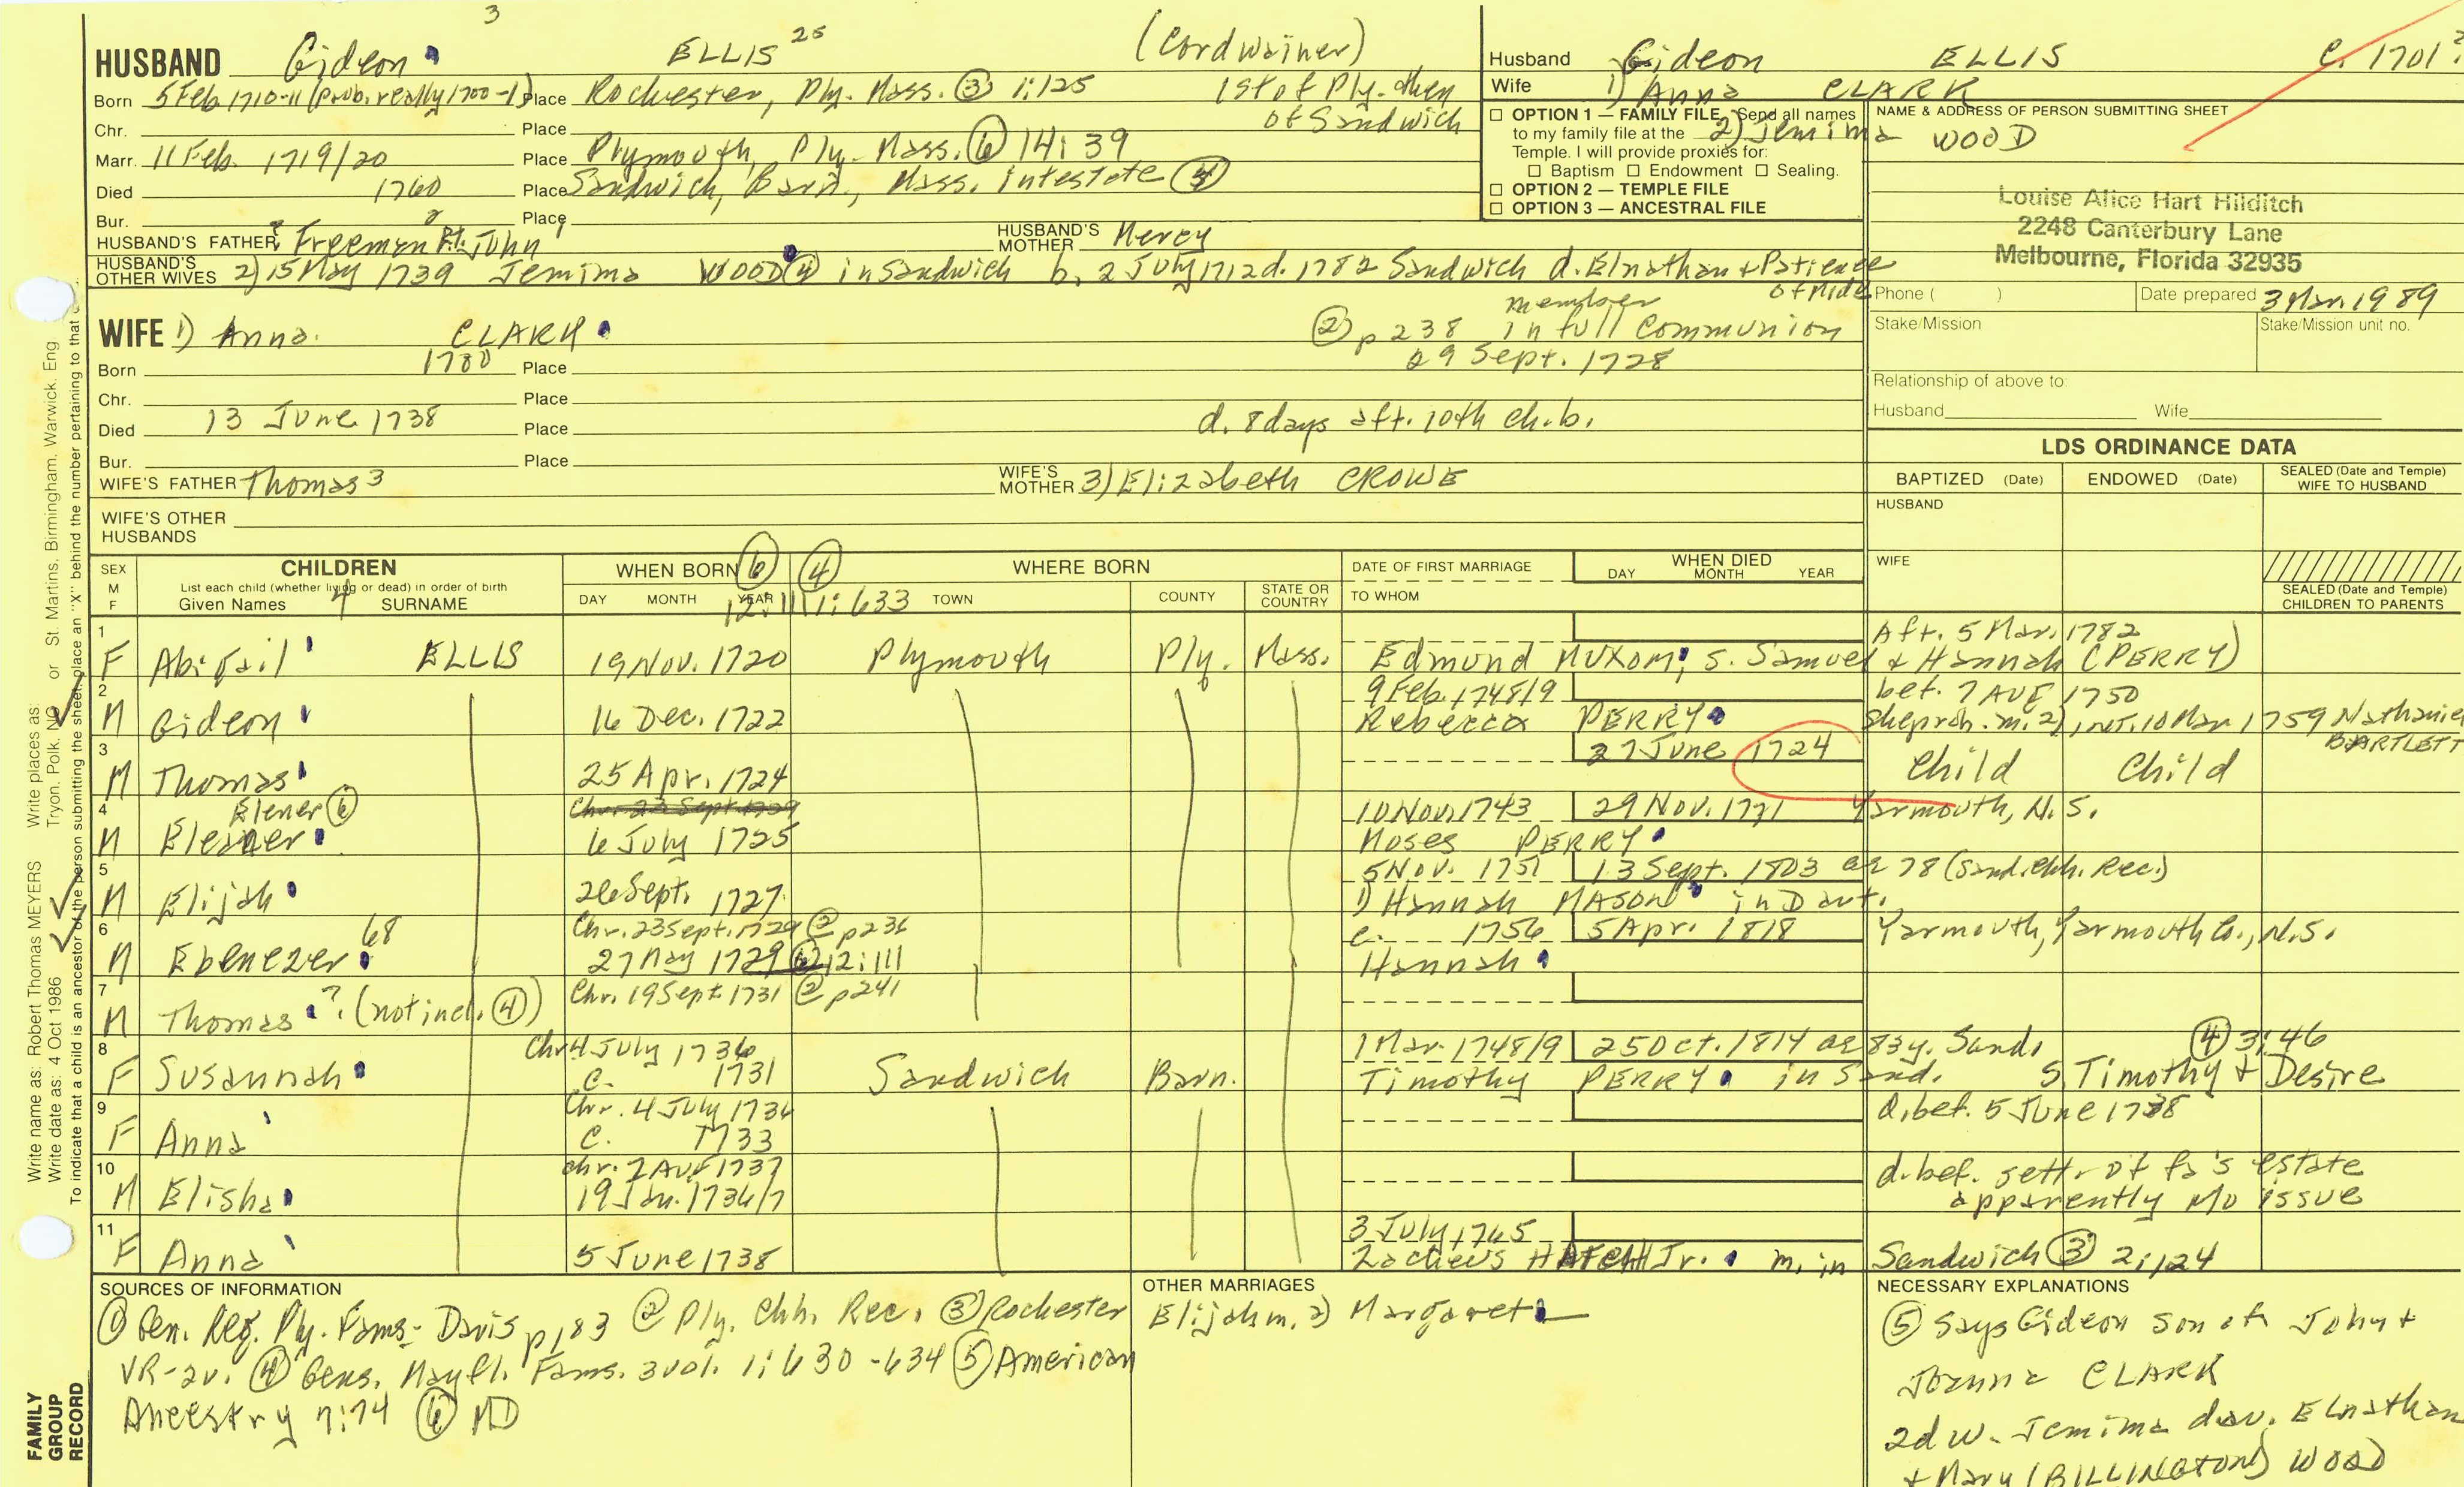 3
HUSBAND Gideon ELLIS 25 (Cordwainer)
Born 5 Feb 1710-11 (prob. really 1700-1) Place Rochester, Ply. Mass. ③ 1:125 1st of Ply. then
of Sandwich
Chr. Place
Marr. 11 Feb. 1719/20 Place Plymouth, Ply. Mass. ⑥ 14:39
Died 1760 Place Sandwich, Barn., Mass. intestate ④
Bur. Place
HUSBAND'S FATHER ? Freeman Pt. John
HUSBAND'S MOTHER Mercy
HUSBAND'S OTHER WIVES 2) 15 May 1739 Jemima WOOD ④ in Sandwich b. 2 July 1712 d. 1782 Sandwich d. Elnathan + Patience
of Midd
Husband Gideon ELLIS C. 1701?
Wife 1) Anna CLARK
2) Jemima WOOD
☐ OPTION 1 — FAMILY FILE Send all names
to my family file at the
Temple. I will provide proxies for:
☐ Baptism ☐ Endowment ☐ Sealing.
☐ OPTION 2 — TEMPLE FILE
☐ OPTION 3 — ANCESTRAL FILE
NAME & ADDRESS OF PERSON SUBMITTING SHEET
Louise Alice Hart Hilditch
2248 Canterbury Lane
Melbourne, Florida 32935
Phone ( )
Date prepared 3 Mar. 1989
Stake/Mission
Stake/Mission unit no.
Relationship of above to:
Husband Wife
WIFE 1) Anna CLARK
member
② p 238 in full communion
29 Sept. 1728
Born 1700 Place
Chr. Place
Died 13 June 1738 Place d. 8 days aft. 10th ch. b.
Bur. Place
WIFE'S FATHER Thomas 3
WIFE'S MOTHER 3) Elizabeth CROWE
WIFE'S OTHER HUSBANDS
LDS ORDINANCE DATA
BAPTIZED (Date) ENDOWED (Date) SEALED (Date and Temple) WIFE TO HUSBAND
HUSBAND
WIFE
SEALED (Date and Temple) CHILDREN TO PARENTS
SEX M F
CHILDREN
List each child (whether living or dead) in order of birth
Given Names 4 SURNAME
WHEN BORN ⑥ ④
DAY MONTH YEAR
12:111 1:633
WHERE BORN
TOWN COUNTY STATE OR COUNTRY
DATE OF FIRST MARRIAGE
TO WHOM
WHEN DIED
DAY MONTH YEAR
Aft. 5 Mar. 1782
1 F Abigail ELLIS 19 Nov. 1720 Plymouth Ply. Mass. Edmund MUXOM, s. Samuel + Hannah (PERRY)
9 Feb. 1748/9 bet. 7 AUG 1750
2 M Gideon 16 Dec. 1722 Rebecca PERRY She prob. m. 2) int. 10 Mar 1759 Nathaniel
BARTLETT
27 June 1724
3 M Thomas 25 Apr. 1724 Child Child
Elener ⑥ Chr. 23 Sept. 1729 10 Nov. 1743 29 Nov. 1771 Yarmouth, N.S.
4 M Eleaner 6 July 1725 Moses PERRY
5 Nov. 1751 13 Sept. 1803 ae 78 (Sand. chh. Rec.)
5 M Elijah 26 Sept. 1727 1) Hannah MASON in Dart.
68 Chr. 23 Sept. 1729 ② p 236 c. 1756 5 Apr. 1818 Yarmouth, Yarmouth Co., N.S.
6 M Ebenezer 27 May 1729 ⑥ 12:111 Hannah
Chr. 19 Sept 1731 ② p 241
7 M Thomas ? (not incl. ④)
Chr 4 July 1736 1 Mar. 1748/9 25 Oct. 1814 ae 83 y. Sand. ④ 3:46
8 F Susannah c. 1731 Sandwich Barn. Timothy PERRY in Sand. S. Timothy + Desire
Chr. 4 July 1736 d. bef. 5 June 1738
9 F Anna c. 1733
chr. 7 AUG 1737 d. bef. settl. of fa's estate
10 M Elisha 19 Jan. 1736/7 apparently no issue
3 July 1765
11 F Anna 5 June 1738 Zacheus HATCH Jr. m. in Sandwich ③ 2:124
SOURCES OF INFORMATION
① Gen. Reg. Ply. Fams - Davis p 183 ② Ply. Chh. Rec. ③ Rochester
VR-2v. ④ Gens. Mayfl. Fams. 3 vol. 1:630-634 ⑤ American
Ancestry 7:74 ⑥ MD
OTHER MARRIAGES
Elijah m. 2) Margaret
NECESSARY EXPLANATIONS
⑤ Says Gideon son of John +
Joanna CLARK
2d w. Jemima dau. Elnathan
+ Mary (BILLINGTON) WOOD
Write name as: Robert Thomas MEYERS Write places as: Tryon, Polk, NC or St. Martins, Birmingham, Warwick, Eng
Write date as: 4 Oct 1986
To indicate that a child is an ancestor of the person submitting the sheet, place an "X" behind the number pertaining to that
FAMILY
GROUP
RECORD